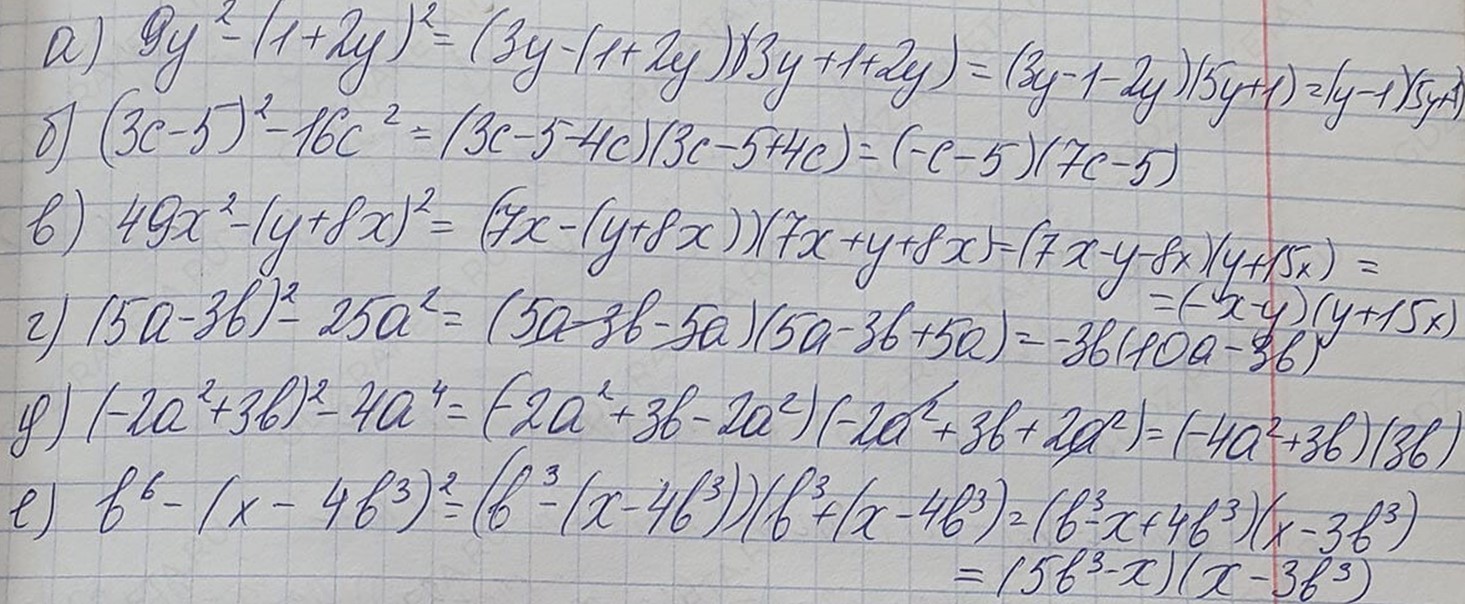 а) 9y² - (1+2y)² = (3y-(1+2y))(3y+1+2y) = (3y-1-2y)(5y+1) = (y-1)(5y+1)
б) (3c-5)² - 16c² = (3c-5-4c)(3c-5+4c) = (-c-5)(7c-5)
в) 49x² - (y+8x)² = (7x-(y+8x))(7x+y+8x) = (7x-y-8x)(y+15x) =
= (-x-y)(y+15x)
г) (5a-3b)² - 25a² = (5a-3b-5a)(5a-3b+5a) = -3b(10a-3b)
д) (-2a²+3b)² - 4a⁴ = (-2a²+3b-2a²)(-2a²+3b+2a²) = (-4a²+3b)(3b)
е) b⁶ - (x-4b³)² = (b³-(x-4b³))(b³+(x-4b³) = (b³-x+4b³)(x-3b³)
= (5b³-x)(x-3b³)